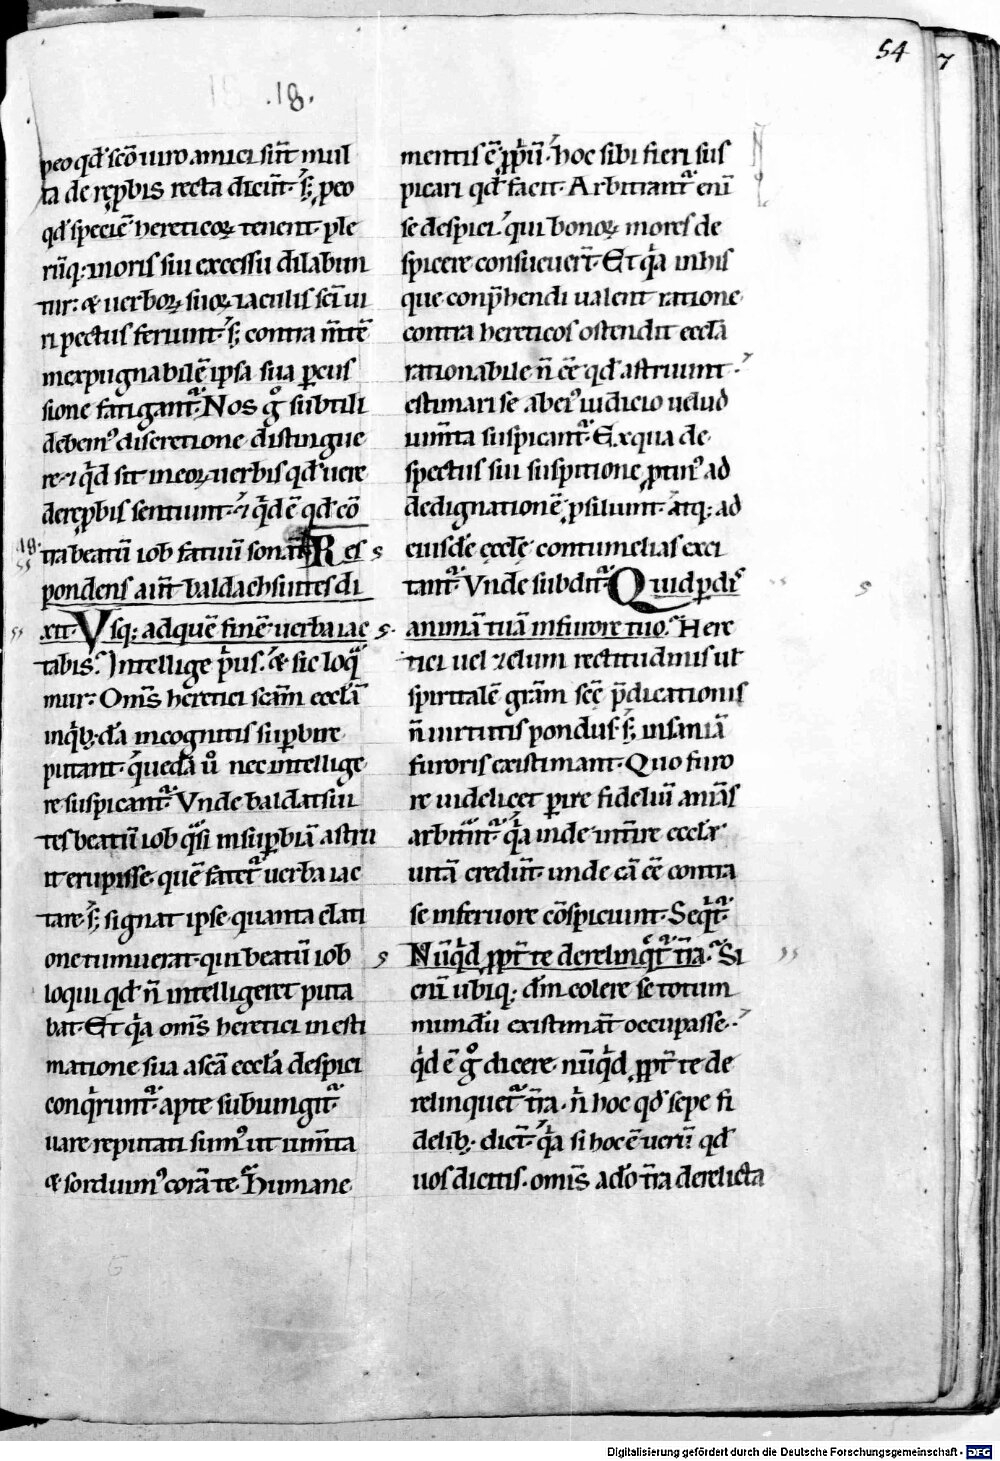 54
7
.18.
peo qd' sc̄o uiro amici sūt mul
ta de rep̱bis recta dicūt· s; peo
qd' speciē hereticoꝝ tenent· ple
rūq; moris sui excessu dilabun
tur· & uerboꝝ suoꝝ iaculis sc̄i ui
ri pectus feriunt· s; contra m̄tē
inexpugnabilē ipsa sua ꝑcus
sione fatigant᷑· Nos g° subtili
debem' discretione distingue
re· ⁊ q'd sit in eoꝝ uerbis qd' uere
de rep̱bis sentiunt· ⁊ q'd ē qd' cō
tra beatū iob fatuū sonant· Res
pondens aūt baldach suites di
xit· Vsq; ad quē finē uerba iac
tabis? Intellige p'us· & sic loq̄
mur· Om̄s heretici sc̄am eccl'ā
in q'b; dā incognitis suꝑbire
putant· q̄uedā ū nec intellige
re suspicant᷑· Vnde baldat sui
tes beatū iob q̄si in suꝑbiā astru
it erupisse· quē fatet᷑ uerba iac
tare· s; signat ipse quanta elati
one tumuerat· qui beatū iob
loqui qd' n̄ intelligeret puta
bat· Et q'a om̄s heretici in esti
matione sua a sc̄ā eccl'a despici
conq'runt᷑· apte subiungit᷑·
uare reputati sum' ut ium̄ta
& sorduim' corā te· Humane
mentis ē ꝓpriū· hoc sibi fieri sus
picari qd' facit· Arbitrant᷑ enī
se despici· qui bonoꝝ mores de
spicere consueuer̄t· Et q'a in his
que conp̄hendi ualent ratione·
contra hereticos ostendit eccl'a
rationabile n̄ ēē qd' astruunt·
estimari se ab ei' iudicio uelud
ium̄ta suspicant᷑· Ex qua de
spectus sui suspitione ꝓtin' ad
dedignationē ꝓsiliunt· atq; ad
eiusdē eccl'ę contumelias exci
tant᷑· Vnde subdit᷑· Quid ꝑdis
animā tuā in furore tuo? Here
tici uel zelum rectitudinis ul'
spiritalē grām sc̄ę p̄dicationis
n̄ uirtutis pondus· s; insaniā
furoris existimant· Quo furo
re uidelicet ꝑire fideliū animas
arbitrant᷑· q'a inde int̄ire eccl'ę
uitā credūt· unde eā ēē contra
se in feruore cōspiciunt· Seq't᷑·
Nūq'd ꝓpt̄ te derelinq̄t᷑ t̄ra? Si
enī ubiq; dm̄ colere se totum
mundū existimāt occupasse·
q'd ē g° dicere· nūq'd ꝓpt̄ te de
relinquet᷑ t̄ra· n' hoc qd' sepe fi
delib; dicūt· q'a si hoc ē uerū qd'
uos dicitis· omis a dō t̄ra derelicta
Digitalisierung gefördert durch die Deutsche Forschungsgemeinschaft - DFG